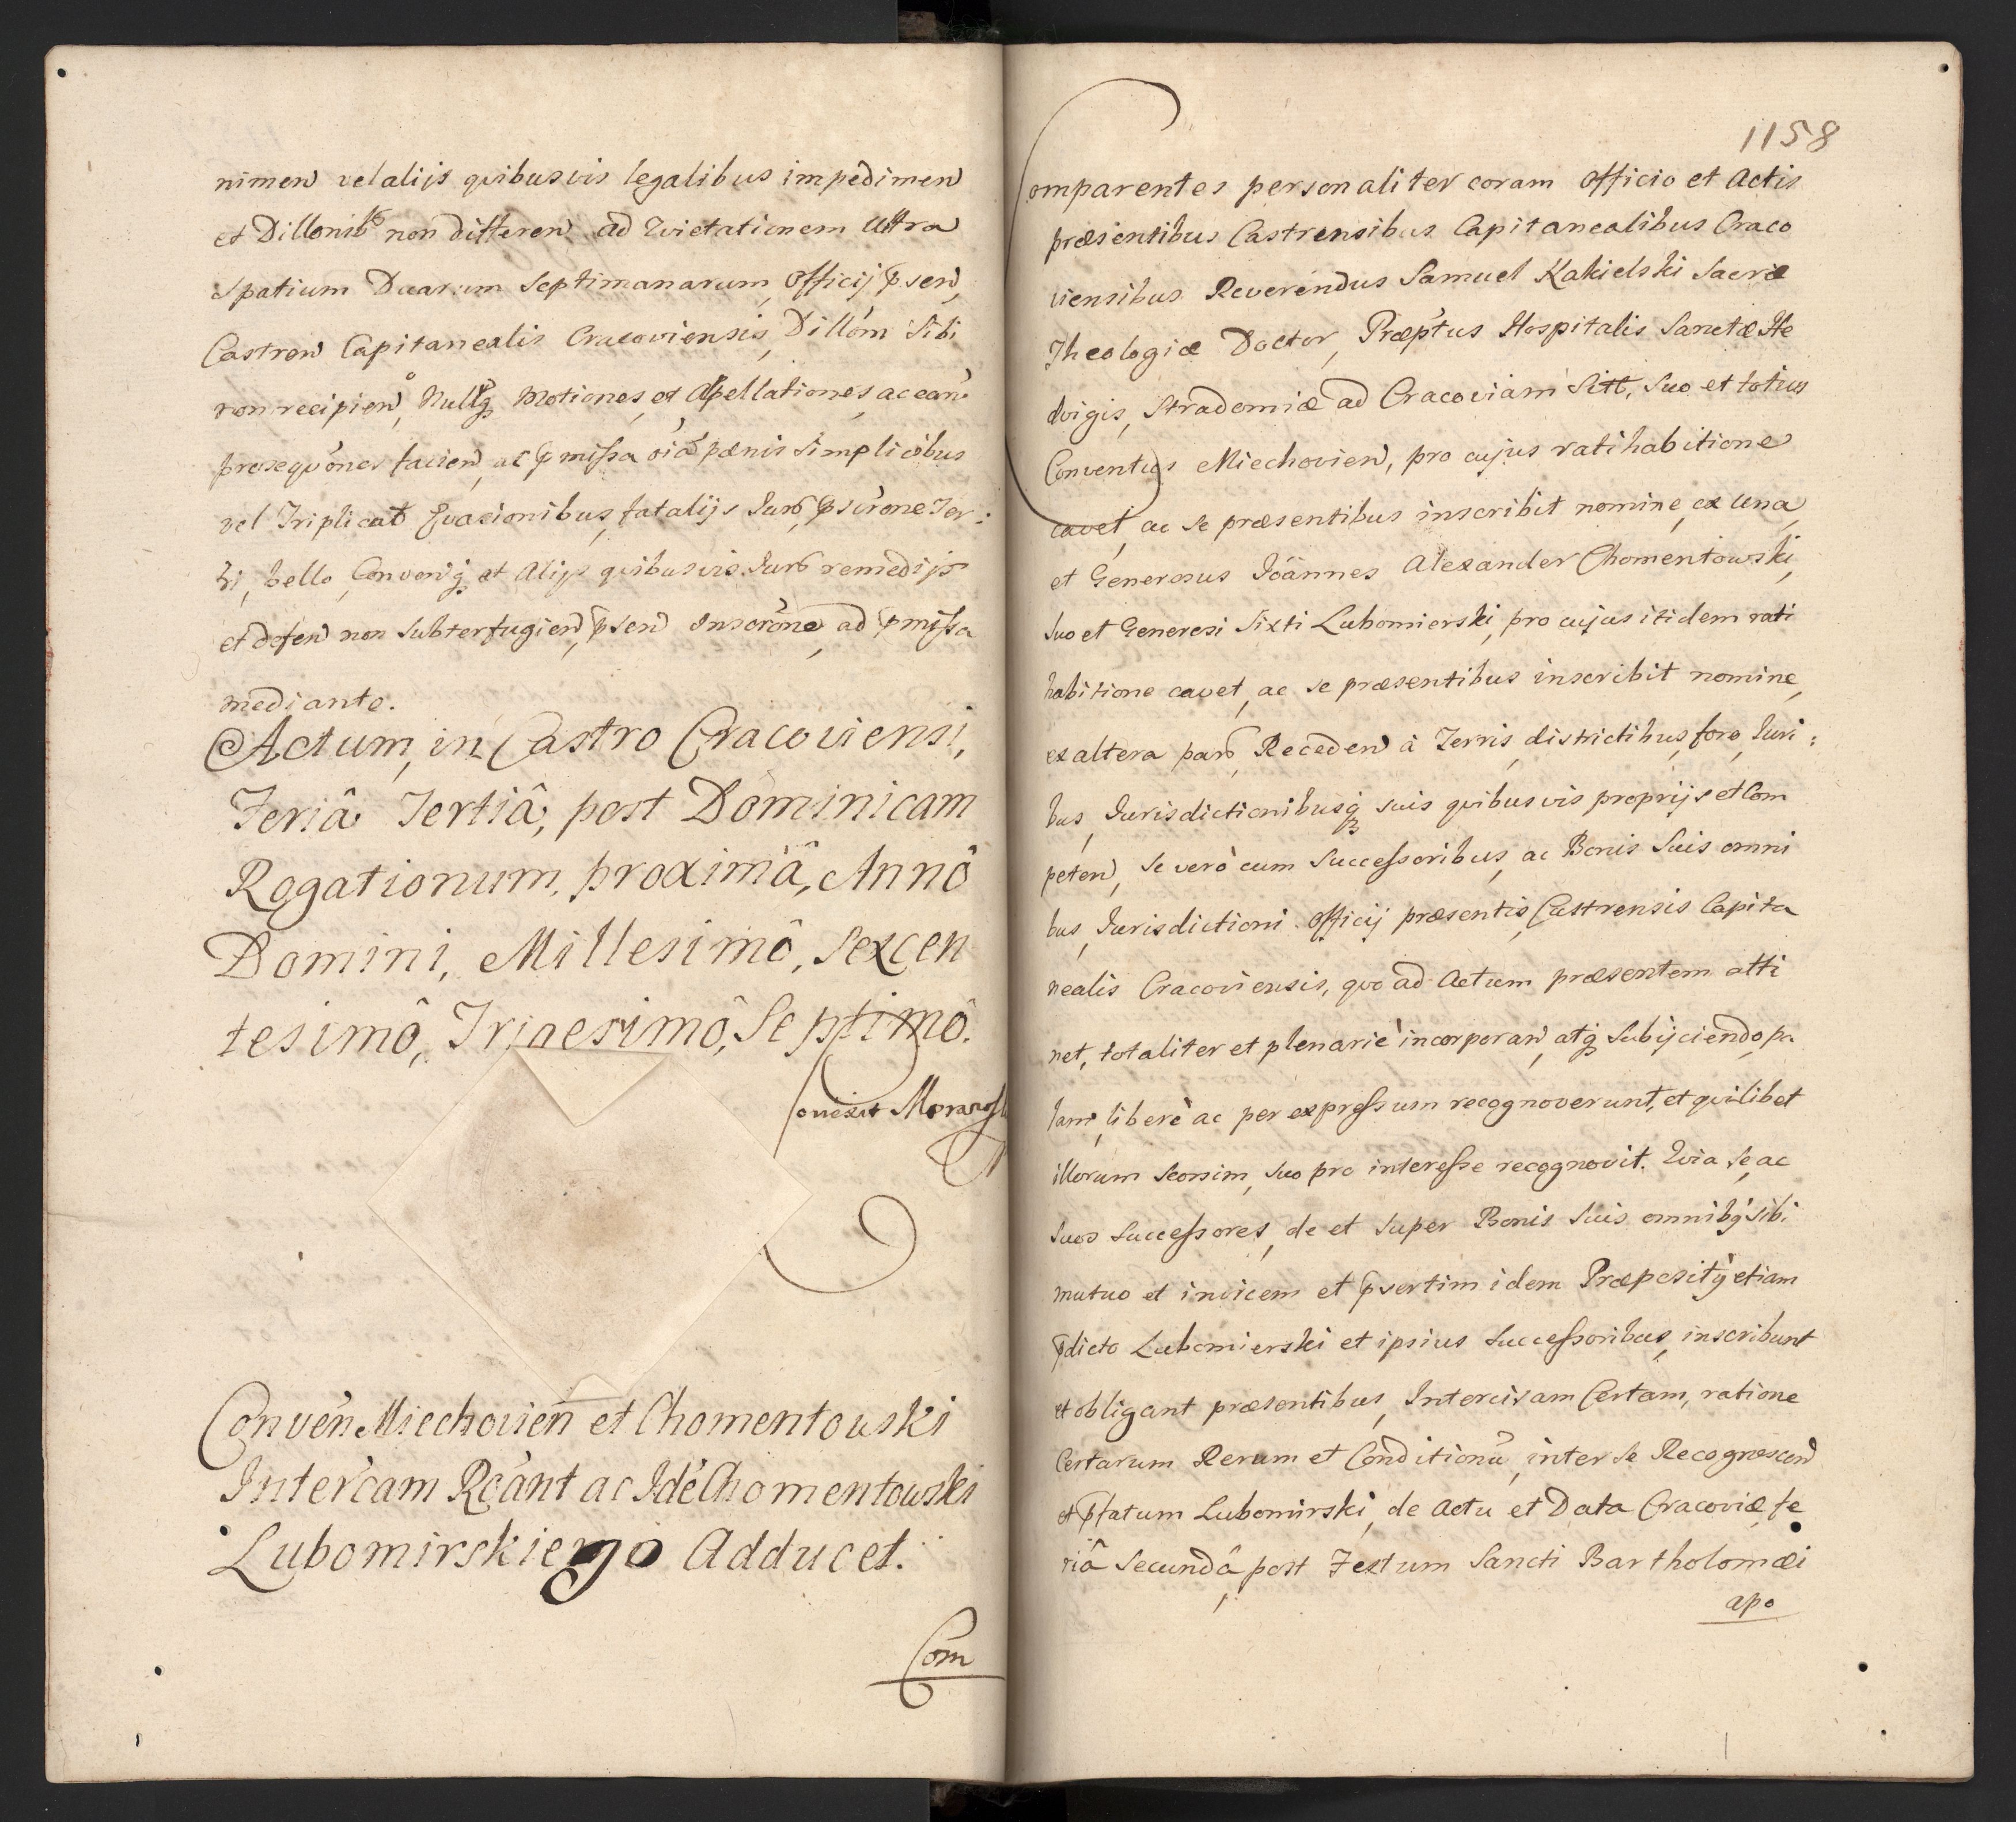 nimen vel alijs quibusvis legalibus impedimen
et Dillonib non differen ad Evictationem Ultra
Spatium Duarum Septimanarum, Officij psen,
Castren Capitanealis Cracoviensis, Dillom Sibi
non recipien, Nullasq Motiones, et Apellationes, ac ean
prosequones facien, ac pmissa oia pænis Simplicibus
vel Triplicat Evasionibus, fatalijs Juro, pscrone Ter:
ri, bello, Convenq et Alijs quibusvis Juro remedijs
et defen non subterfugien, psen Inscrone, ad pmissa
mediante.
Actum, in Castro Cracoviensi,
Feriâ Tertiâ, post Dominicam
Rogationum, proximâ, Annô
Domini, Millesimô, Sexcen
tesimô, Trigesimô, Septimô.
Conven Miechovien et Chomentowski
Intercam Rcant ac Ide Chomentowski
Lubomirskiego Adducet.
Com
1158
Comparentes personaliter coram Officio et Actis
præsentibus Castrensibus Capitanealibus Craco
viensibus Reverendus Samuel Kakielski Sacræ
Theologiæ Doctor, Præptus Hospitalis Sanctæ He
dvigis, Stradomiæ ad Cracoviam Sitt, Suo et totius
Conventus Miechovien, pro cujus ratihabitione
cavet, ac se præsentibus inscribit nomine, ex Una,
et Generosus Joannes Alexander Chomentowski,
suo et Generosi Sixti Lubomierski, pro cujus itidem rati
habitione cavet, ac se præsentibus inscribit nomine,
ex altera par, Receden à Terris, districtibus, foro, Juri:
bus, Jurisdictionibusq suis quibusvis proprijs et Com
peten, Se verò cum Successoribus, ac Bonis Suis omni
bus, Jurisdictioni Officij præsentis, Castrensis Capita
nealis Cracoviensis, quo ad Actum præsentem atti
net, totaliter et plenariè incorporan, atq Subijciendo, pa
lam, liberè ac per expressum recognoverunt, et quilibet
illorum Seorsim, suo pro interesse recognovit. Quia Se, ac
suos Successores, de et super Bonis Suis omnibq sibi
mutuo et invicem et psertim idem Præpositq etiam
pdicto Lubomierski et ipsius Successoribus, inscribunt
et obligant præsentibus, Intercisam Certam, ratione
Certarum Rerum et Conditionu, inter se Recognoscen
et pfatum Lubomirski, de Actu et Data Cracoviæ fe
riâ Secundâ post Festum Sancti Bartholomæi
apo